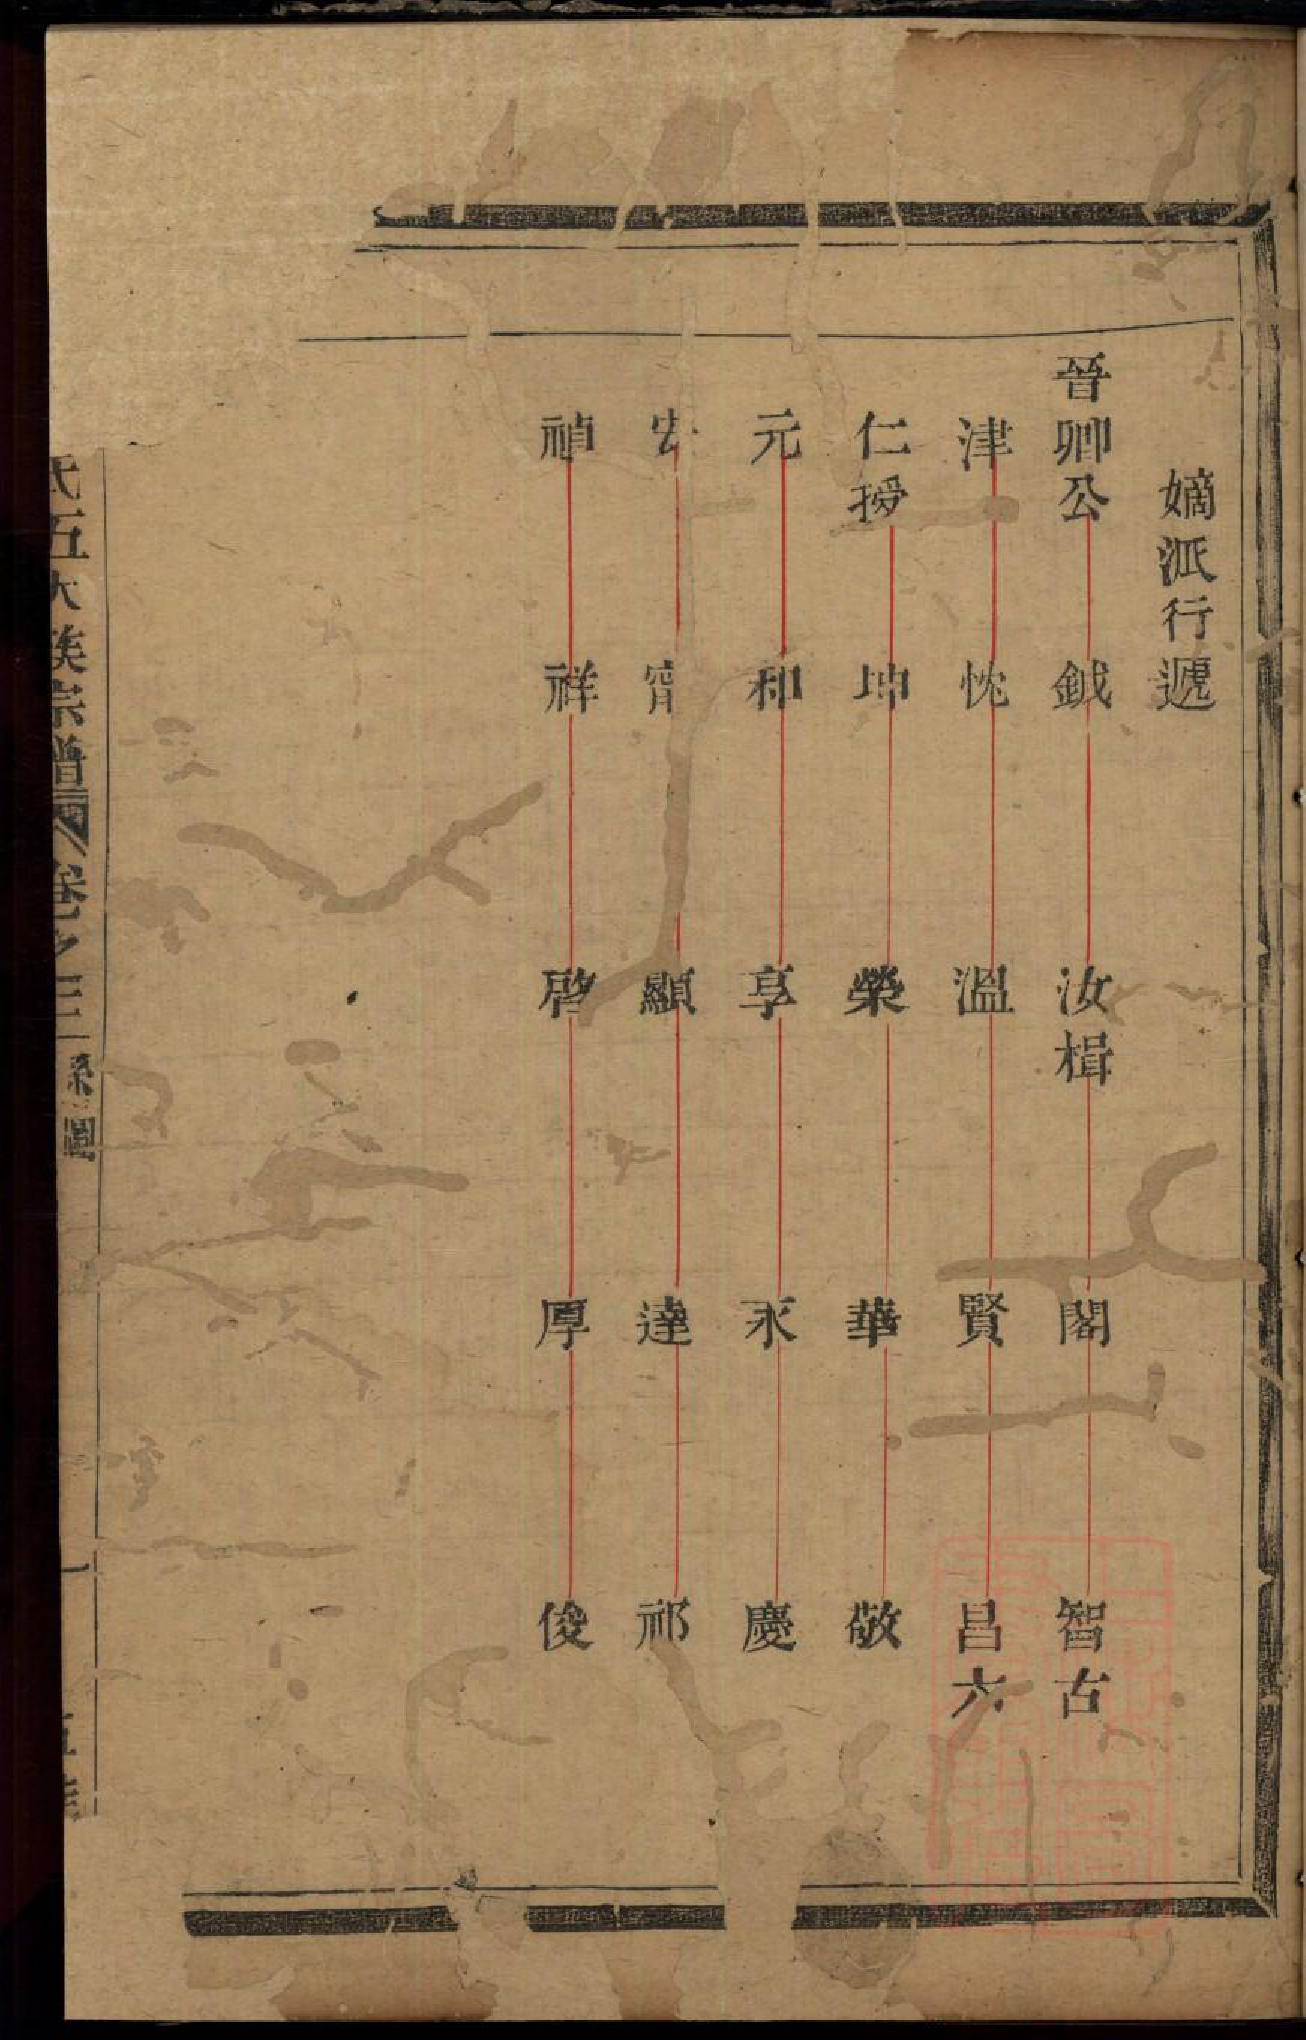 嫡派行遞
晉卿公 鉞 汝楫 閣 智古
津 忱 溫 賢 昌六
仁授 坤 榮 華 敬
元 和 享 永 慶
甯 顯 達 祁
禎 祥 啓 厚 俊
氏五大族宗譜 卷之三 系圖 一